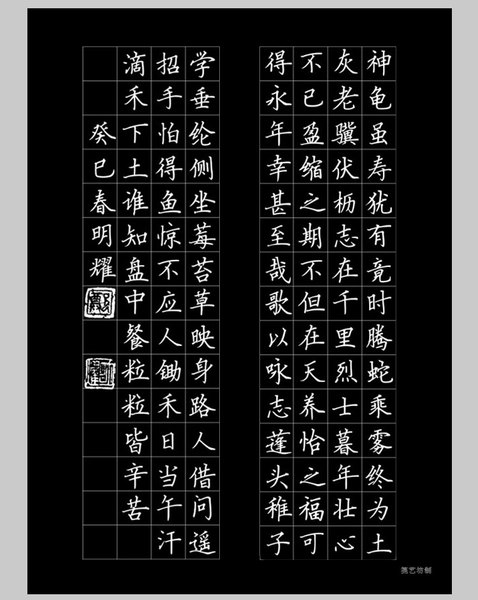 神龟虽寿犹有竟时腾蛇乘雾终为土
灰老骥伏枥志在千里烈士暮年壮心
不已盈缩之期不但在天养怡之福可
得永年幸甚至哉歌以咏志蓬头稚子
学垂纶侧坐莓苔草映身路人借问遥
招手怕得鱼惊不应人锄禾日当午汗
滴禾下土谁知盘中餐粒粒皆辛苦
癸巳春明耀